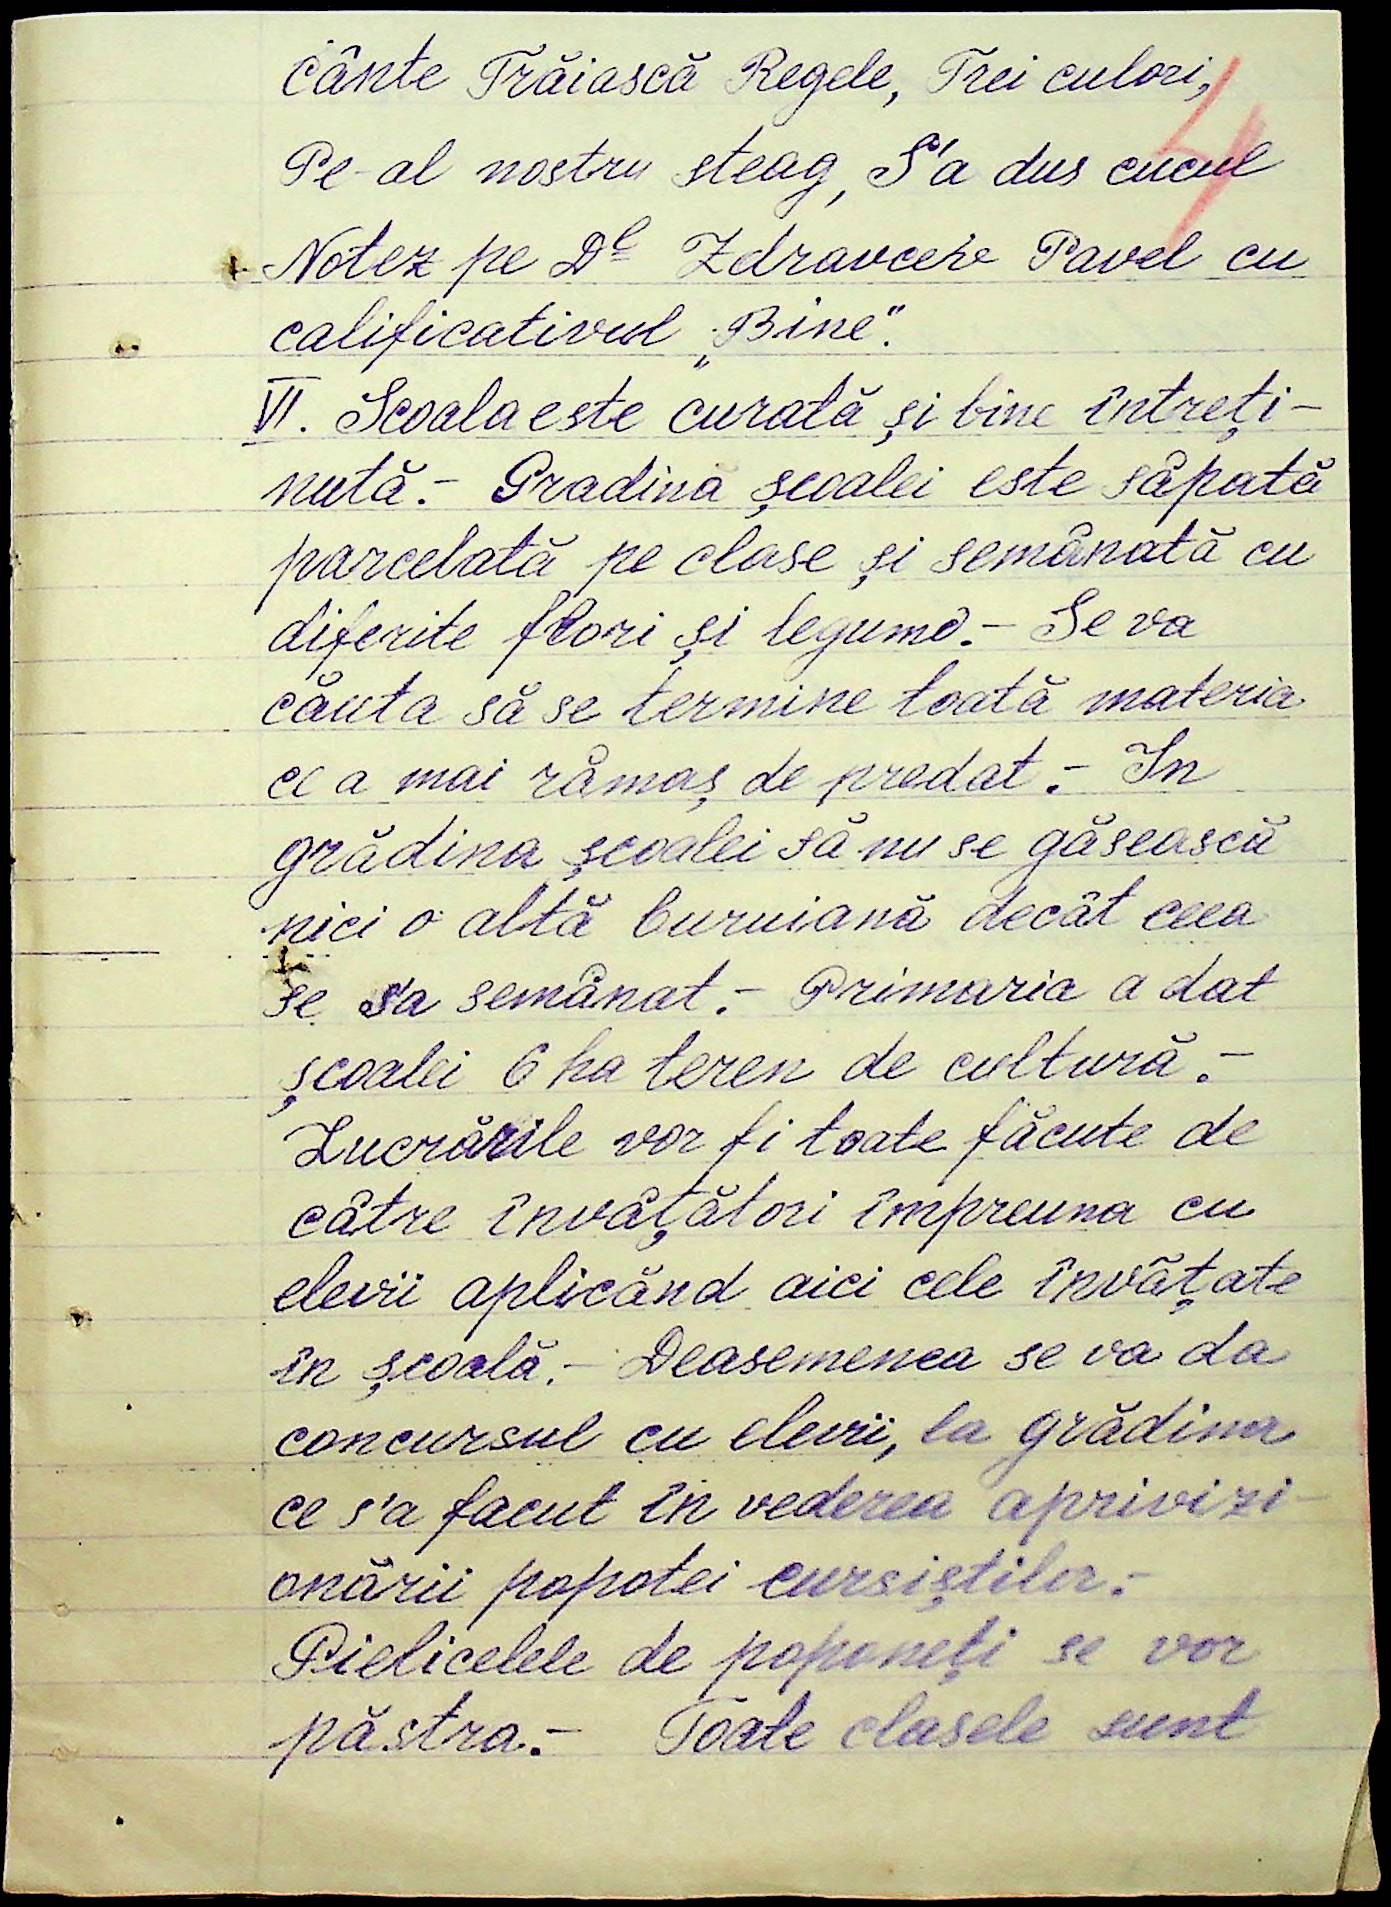 cânte Trăiască Regele, Trei culori,
4
Pe-al nostru steag, S'a dus cucul
Notez pe Dl Zdravcev Pavel cu
calificativul „Bine".
VI. Scoala este curată și bine întreți-
nută.- Gradină școalei este săpată
parcelată pe clase și semânată cu
diferite flori și legume.- Se va
căuta să se termine toată materia
ce a mai rămaș de predat.- In
grădina școalei să nu se găsească
nici o altă buruiană decât ceea
se s'a semânat.- Primaria a dat
școalei 6 ha teren de cultură.-
Lucrările vor fi toate făcute de
câtre învâțători împreuna cu
elevii aplicănd aici cele învățate
în școală.- Deasemenea se va da
concursul cu elevii, la grădina
ce s'a facut în vederea aprivizi-
onării popotei cursiștilor.-
Pielicelele de poponeți se vor
păstra.- Toate clasele sunt